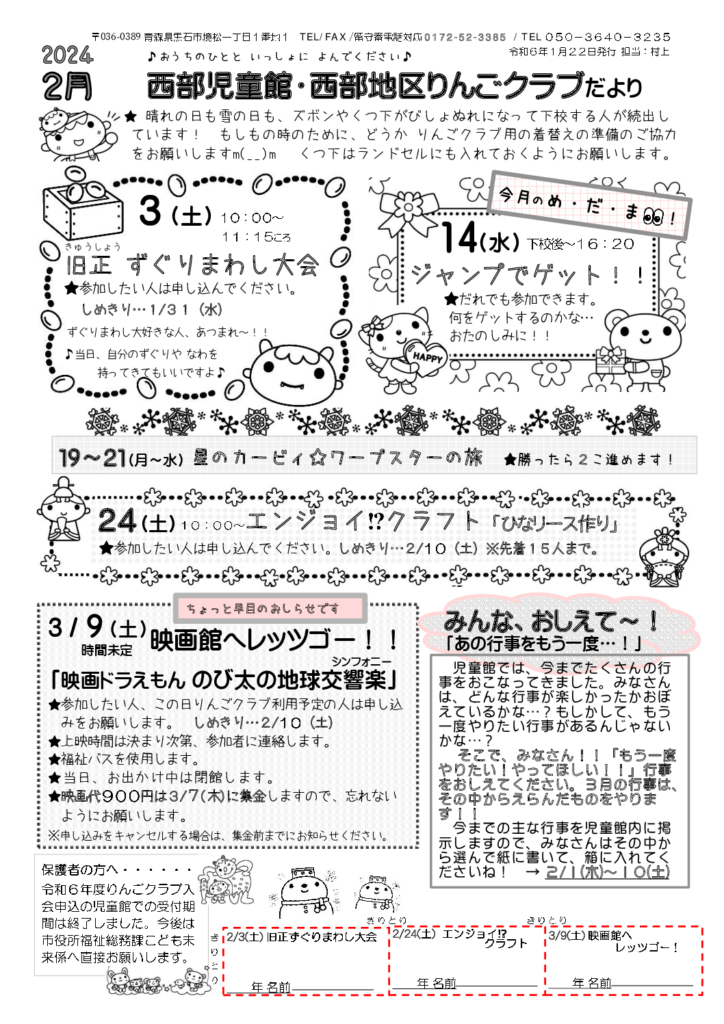 〒036-0389 青森県黒石市境松一丁目1番地1 TEL/FAX/留守番電話対応0172-52-3385 / TEL 050-3640-3235
2024
♪おうちのひとと いっしょに よんでください♪
令和6年1月22日発行 担当:村上
2月 西部児童館・西部地区りんごクラブだより
★ 晴れの日も雪の日も、ズボンやくつ下がびしょぬれになって下校する人が続出し
ています! もしもの時のために、どうか りんごクラブ用の着替えの準備のご協力
をお願いしますm(__)m くつ下はランドセルにも入れておくようにお願いします。
3(土) 10:00~
11:15ころ
きゅうしょう
旧正 ずぐりまわし大会
★参加したい人は申し込んでください。
しめきり…1/31(水)
ずぐりまわし大好きな人、あつまれ~!!
♪当日、自分のずぐりや なわを
持ってきてもいいですよ♪
今月のめ・だ・ま!
14(水) 下校後~16:20
ジャンプでゲット!!
★だれでも参加できます。
何をゲットするのかな…
おたのしみに!!
HAPPY
19~21(月~水) 星のカービィ☆ワープスターの旅 ★勝ったら2こ進めます!
24(土)10:00~エンジョイ!?クラフト「ひなリース作り」
★参加したい人は申し込んでください。しめきり…2/10(土)※先着15人まで。
ちょっと早目のおしらせです
3/9(土) 映画館へレッツゴー!!
時間未定
シンフォニー
「映画ドラえもん のび太の地球交響楽」
★参加したい人、この日りんごクラブ利用予定の人は申し込
みをお願いします。 しめきり…2/10(土)
★上映時間は決まり次第、参加者に連絡します。
★福祉バスを使用します。
★当日、お出かけ中は閉館します。
★映画代900円は3/7(木)に集金しますので、忘れない
ようにお願いします。
※申し込みをキャンセルする場合は、集金前までにお知らせください。
みんな、おしえて~!
「あの行事をもう一度…!」
児童館では、今までたくさんの行
事をおこなってきました。みなさん
は、どんな行事が楽しかったかおぼ
えているかな…?もしかして、もう
一度やりたい行事があるんじゃない
かな…?
そこで、みなさん!!「もう一度
やりたい!やってほしい!!」行事
をおしえてください。3月の行事は、
その中からえらんだものをやりま
す!!
今までの主な行事を児童館内に掲
示しますので、みなさんはその中か
ら選んで紙に書いて、箱に入れてく
ださいね! →2/1(木)~10(土)
保護者の方へ・・・・・・
令和6年度りんごクラブ入
会申込の児童館での受付期
間は終了しました。今後は
市役所福祉総務課こども未
来係へ直接お願いします。
きりとり
きりとり
きりとり
2/3(土)旧正ずぐりまわし大会
年 名前
2/24(土) エンジョイ!?
クラフト
年 名前
3/9(土)映画館へ
レッツゴー!
年 名前